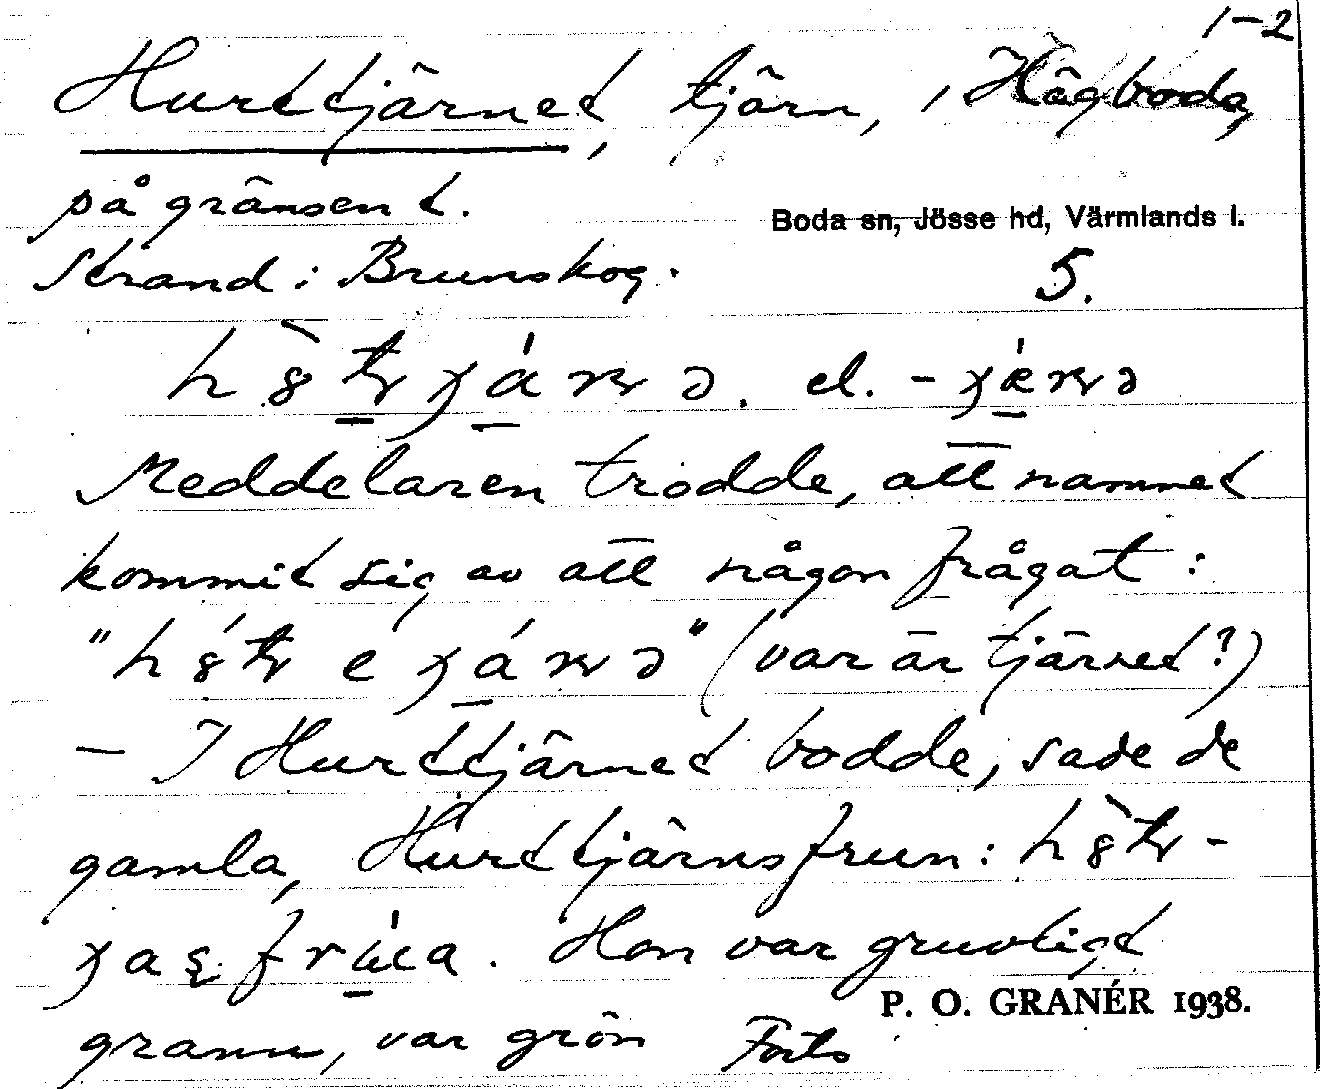 1-2
Hurttjärnet, tjärn, i Högboda,
på gränsen t.
Boda sn, Jösse hd, Värmlands l.
Strand i Brunskog.
5.
el.
Meddelaren trodde, att namnet
kommit sig av att någon frågat:
(var är tjärnet?)
— I Hurttjärnet bodde, sade de
gamla, Hurttjärnsfrun:
Hon var gruvligt
P. O. GRANÉR 1938.
grann, var grön Forts